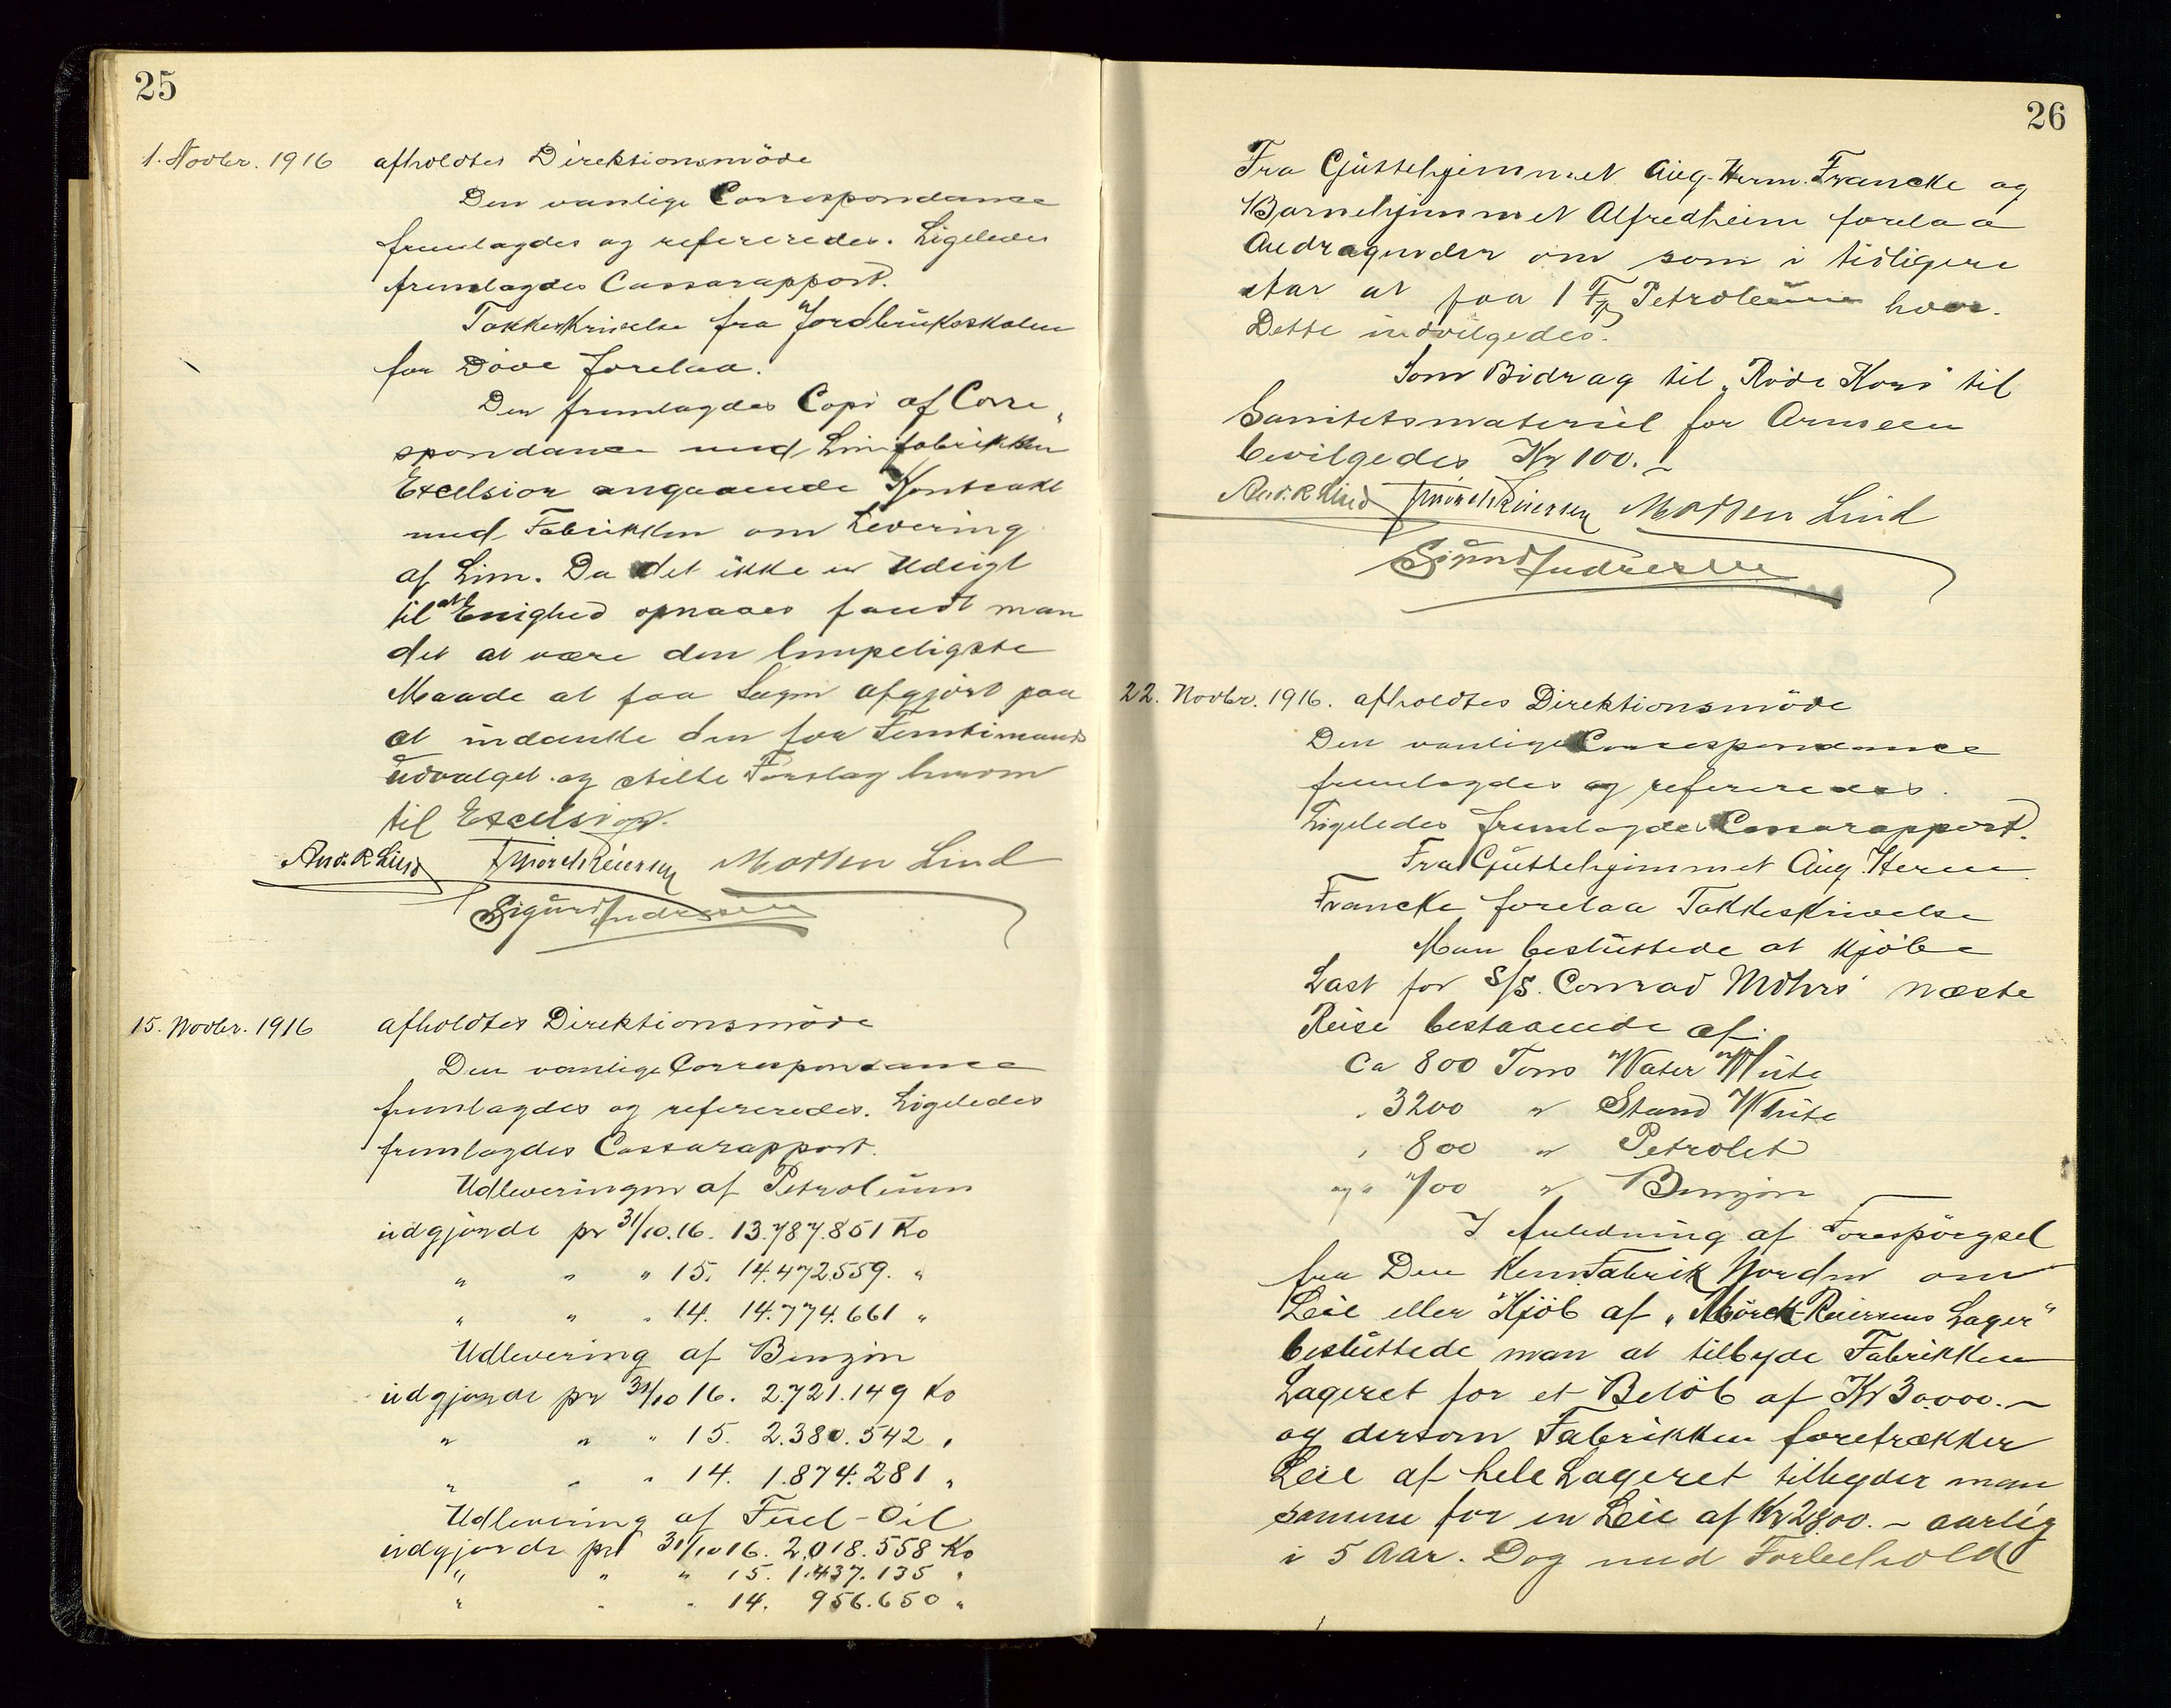 25
1. Novbr. 1916 afholdtes Direktionsmöde
Den vanlige Correspondance
fremlagdes og refereredes. Ligeledes
fremlagdes Cassarapport.
Takkeskrivelse fra Jordbrukskolen
for Döve forelaa.
Der fremlagdes Copi af Corre„
spondance med Limfabrikken
Excelsior angaaende Kontrakt
med Fabrikken om Levering
af Lim. Da det ikke er Udsigt
til at Enighed opnaaes fandt man
det at være den lempeligste
Maade at faa Sagen afgjört paa
at indanke den for Femtimands
udvalget og stille Forslag herom
til Excelsior.
And. R Lind T Mörch Reiersen Morten Lind
Sigurd Andresen
15. Novbr. 1916 afholdtes Direktionsmöde
Den vanlige Correspondance
fremlagdes og refereredes. Ligeledes
fremlagdes Cassarapport.
Udleveringen af Petroleum
udgjorde pr 31/10.16. 13.787.851 Ko
" " " 15. 14.472.559. "
" " " 14. 14.774.661 "
Udlevering af Benzin
udgjorde pr 31/10 16. 2.721.149 Ko
" " " 15. 2.380.542 "
" " " 14. 1.874.281 "
Udlevering af Fuel-Oil
udgjorde pr 31/10 16. 2.018.558 Ko
" " " 15. 1.437.135 "
" " " 14. 956.650 "
26
Fra Guttehjemmet Aug. Herm. Francke og
Barnehjemmet Alfredheim forelaa
Andragender om som i tidligere
aar at faa 1 Fg Petroleum hver.
Dette indvilgedes.
Som Bidrag til „Röde Kors" til
Sanitetsmateriel for Armeen
bevilgedes Kr 100.-
And. R Lind T Mörch Reiersen Morten Lind
Sigurd Andresen
22. Novbr. 1916. afholdtes Direktionsmöde
Den vanlige Correspondance
fremlagdes og refereredes.
Ligeledes fremlagdes Cassarapport.
Fra Guttehjemmet Aug. Herm.
Francke forelaa Takkeskrivelse
Man besluttede at kjöbe
Last for S/S. Conrad Mohrs næste
Reise bestaaende af:
Ca 800 Tons Water White
" 3200 " Stand White
" 800 " Petrolet
og " 700 " Benzin
I Anledning af Forespörgsel
fra Den Kem. Fabrik Norden om
Leie eller Kjöb af „Mörch-Reiersens Lager"
besluttede man at tilbyde Fabrikken
Lageret for et Belöb af Kr 30.000.-
og dersom Fabrikken foretrækker
Leie af hele Lageret tilbyder man
samme for en Leie af Kr 2800.- aarlig
i 5 Aar. Dog med Forbehold